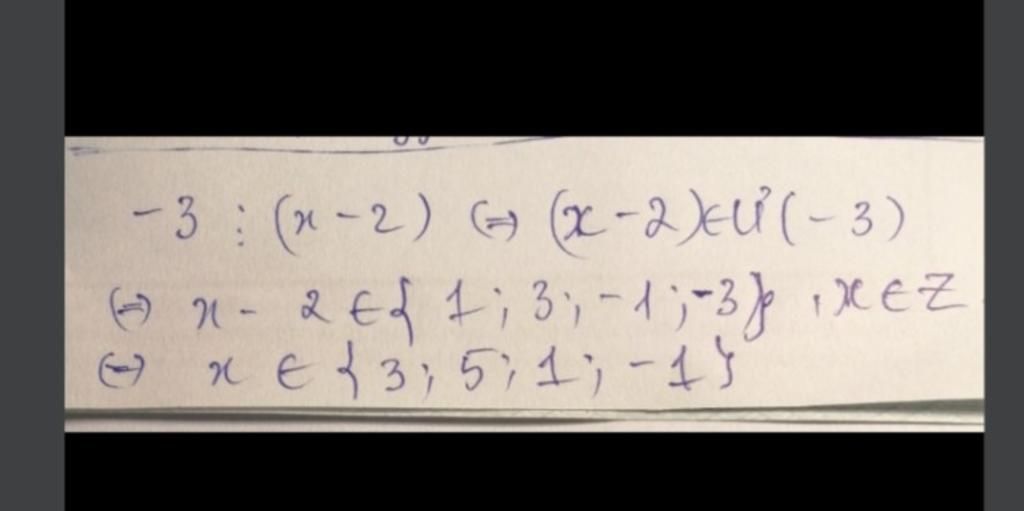 -3 ⋮ (x-2) ⇔ (x-2)∈Ư(-3)
⇔ x - 2 ∈ { 1 ; 3 ; -1 ; -3} , x ∈ Z
⇔ x ∈ { 3 ; 5 ; 1 ; -1 }